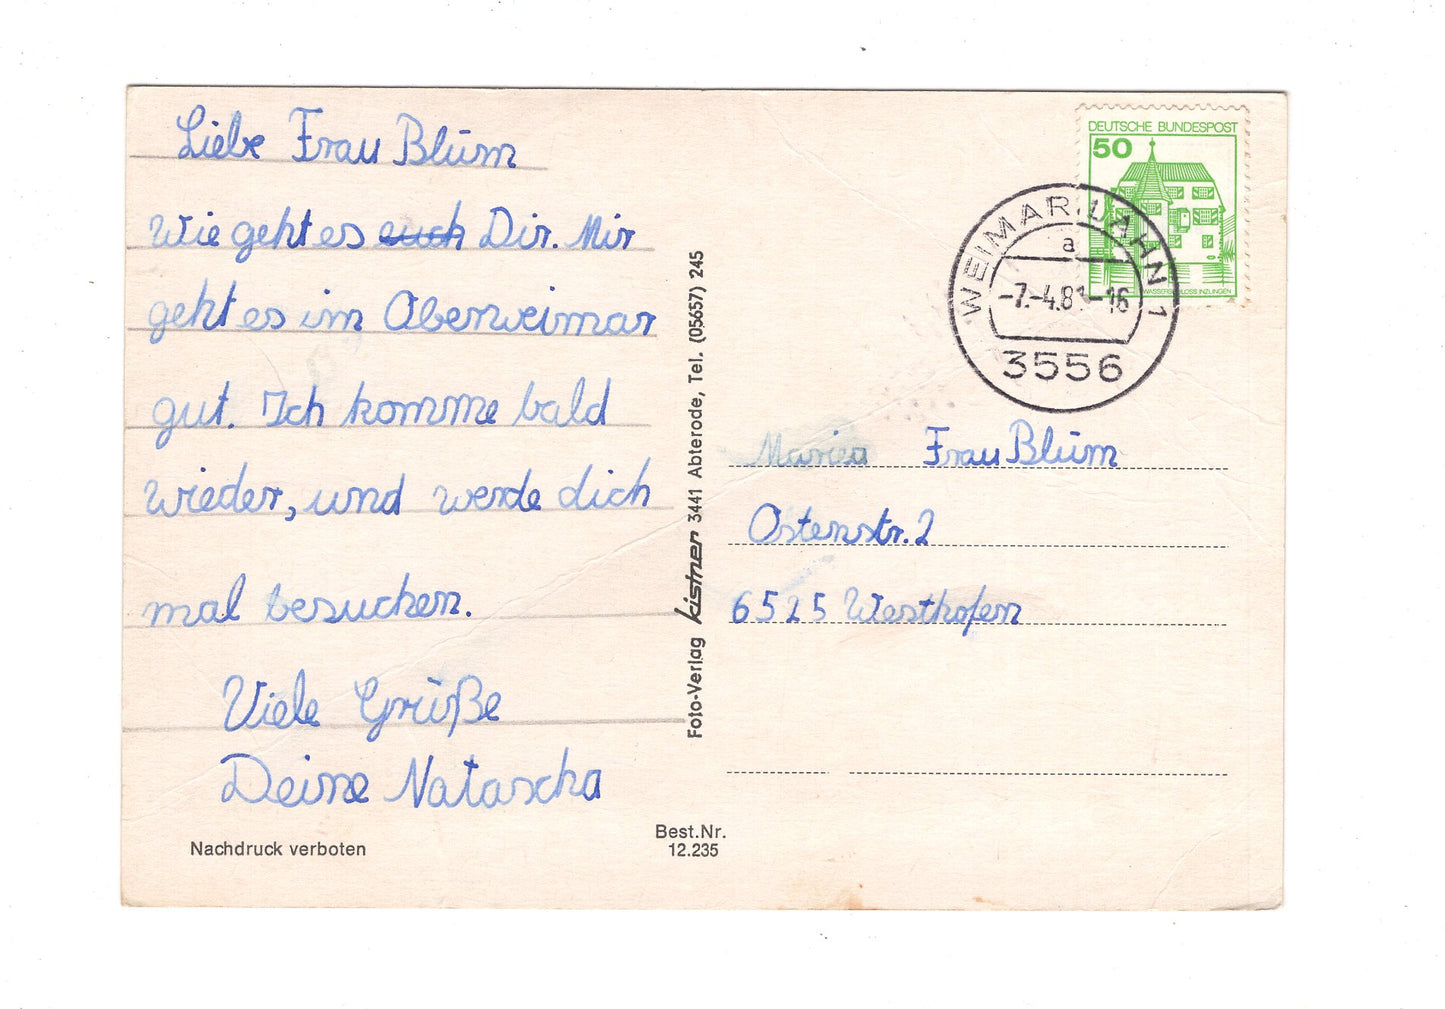 Liebe Frau Blüm
Wie geht es euch Dir. Mir
geht es im Oberweimar
gut. Ich komme bald
wieder, und werde dich
mal besuchen.
Viele Grüße
Deine Natascha
Nachdruck verboten
Best.Nr.
12.235
Foto-Verlag kistner 3441 Abterode, Tel. (05657) 245
DEUTSCHE BUNDESPOST
50
WASSERSCHLOSS INZLINGEN
WEIMAR, LAHN 1
a
-7.-4.81-16
3556
Frau Blüm
Ostenstr. 2
6525 Westhofen